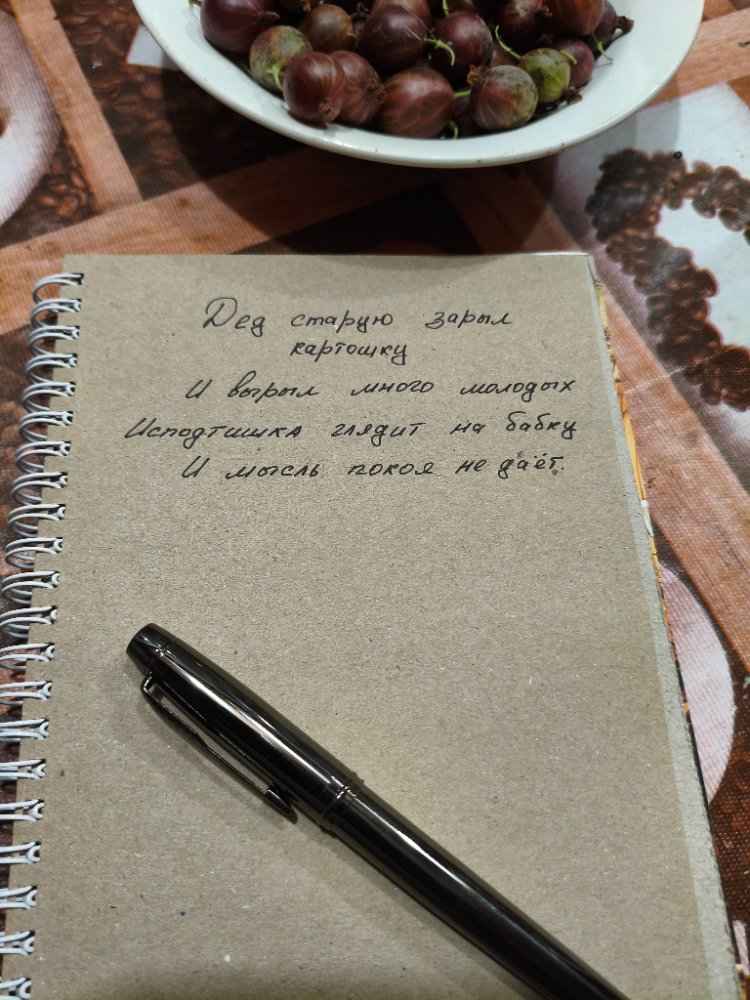 Дед старую зарыл
картошку
И вырыл много молодых
Исподтишка глядит на бабку
И мысль покоя не даёт.